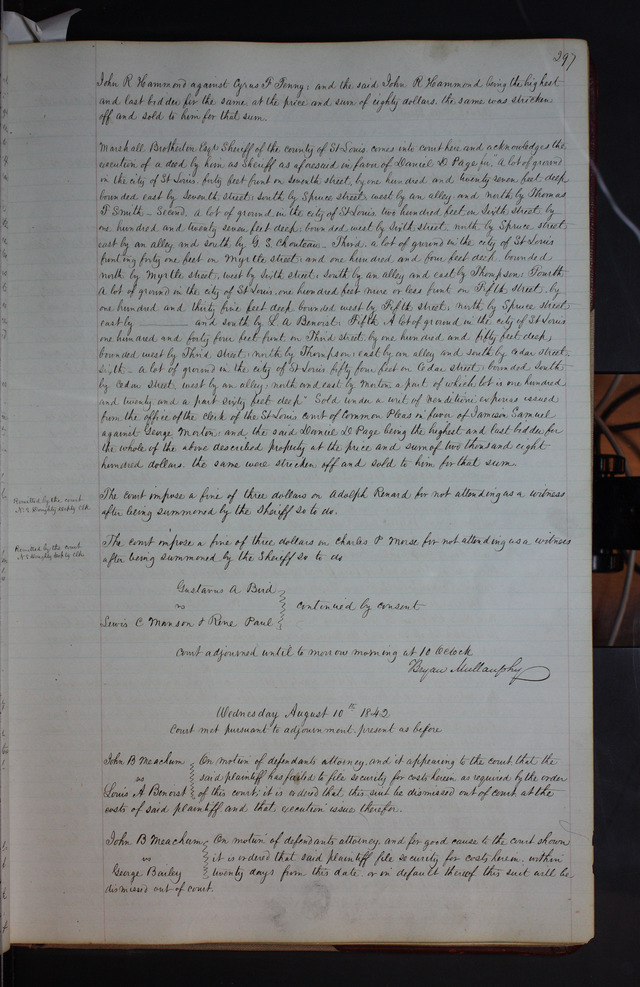 297
John R Hammond against Cyrus F Tonny; and the said John R Hammond being the highest
and last bidder for the same at the price and sum of eighty dollars. the same was stricken
off and sold to him for that sum.
Marshall Brotherton Esqr Sheriff of the county of St Louis. comes into court here and acknowledges the
execution of a deed by him as Sheriff as aforesaid in favor of Daniel D Page for "A lot of ground
in the city of St Louis. forty feet front on Seventh street, by one hundred and twenty seven feet deep
bounded east by Seventh street; south by Spruce street, west by an alley and north by Thomas
F Smith – Second. A lot of ground in the city of St Louis two hundred feet on Sixth street by
one hundred and twenty seven feet deep. bounded west by Sixth street. north by Spruce street,
east by an alley and south by G. S. Chouteau – Third. a lot of ground in the city of St Louis
fronting forty one feet on Myrtle street; and one hundred and four feet deep. bounded
north by Myrtle street. west by Sixth street; south by an alley and east by Thompson; Fourth
A lot of ground in the city of St Louis. one hundred feet more or less front on Fifth street, by
one hundred and thirty five feet deep bounded west by Fifth street; north by Spruce street
east by ______ and south by L A Benoist; Fifth. A lot of ground in the city of St Louis
one hundred and forty four feet front on Third street by one hundred and fifty feet deep,
bounded west by Third street; north by Thompson; east by an alley and south by Cedar street,
Sixth – A lot of ground in the city of St Louis fifty four feet on Cedar street; bounded South
by Cedar street. west by an alley; north and east by Morton a part of which lot is one hundred
and twenty and a part sixty feet deep" Sold under a writ of Venditioni exponas issued
from the office of the clerk of the St Louis court of Common Pleas in favor of Jamison Samuel
against George Morton; and the said Daniel D Page being the highest and last bidder for
the whole of the above described property at the price and sum of two thousand eight
hundred dollars. the same were stricken off and sold to him for that sum.
Remitted by the court
Depty Clk
The court impose a fine of three dollars on Adolph Renard for not attending as a witness
after being summoned by the Sheriff so to do.
Remitted by the court
Depty Clk
The court impose a fine of three dollars on Charles P Morse for not attending as a witness
after being summoned by the Sheriff so to do
Gustavus A Bird
vs continued by consent
Lewis C Manson & Rene Paul
Court adjourned until to morrow morning at 10 Oclock
Bryan Mullanphy
Wednesday August 10th 1842
Court met pursuant to adjournment. present as before
John B Meacham On motion of defendants attorney, and it appearing to the court that the
vs said plaintiff has failed to file security for costs herein as required by the order
Louis A Benoist of this court; it is ordered that this suit be dismissed out of court at the
costs of said plaintiff and that execution issue therefor.
John B Meacham On motion of defendants attorney and for good cause to the court shown
vs it is ordered that said plaintiff file security for costs herein. within
George Bailey twenty days from this date or in default thereof this suit will be
dismissed out of court.